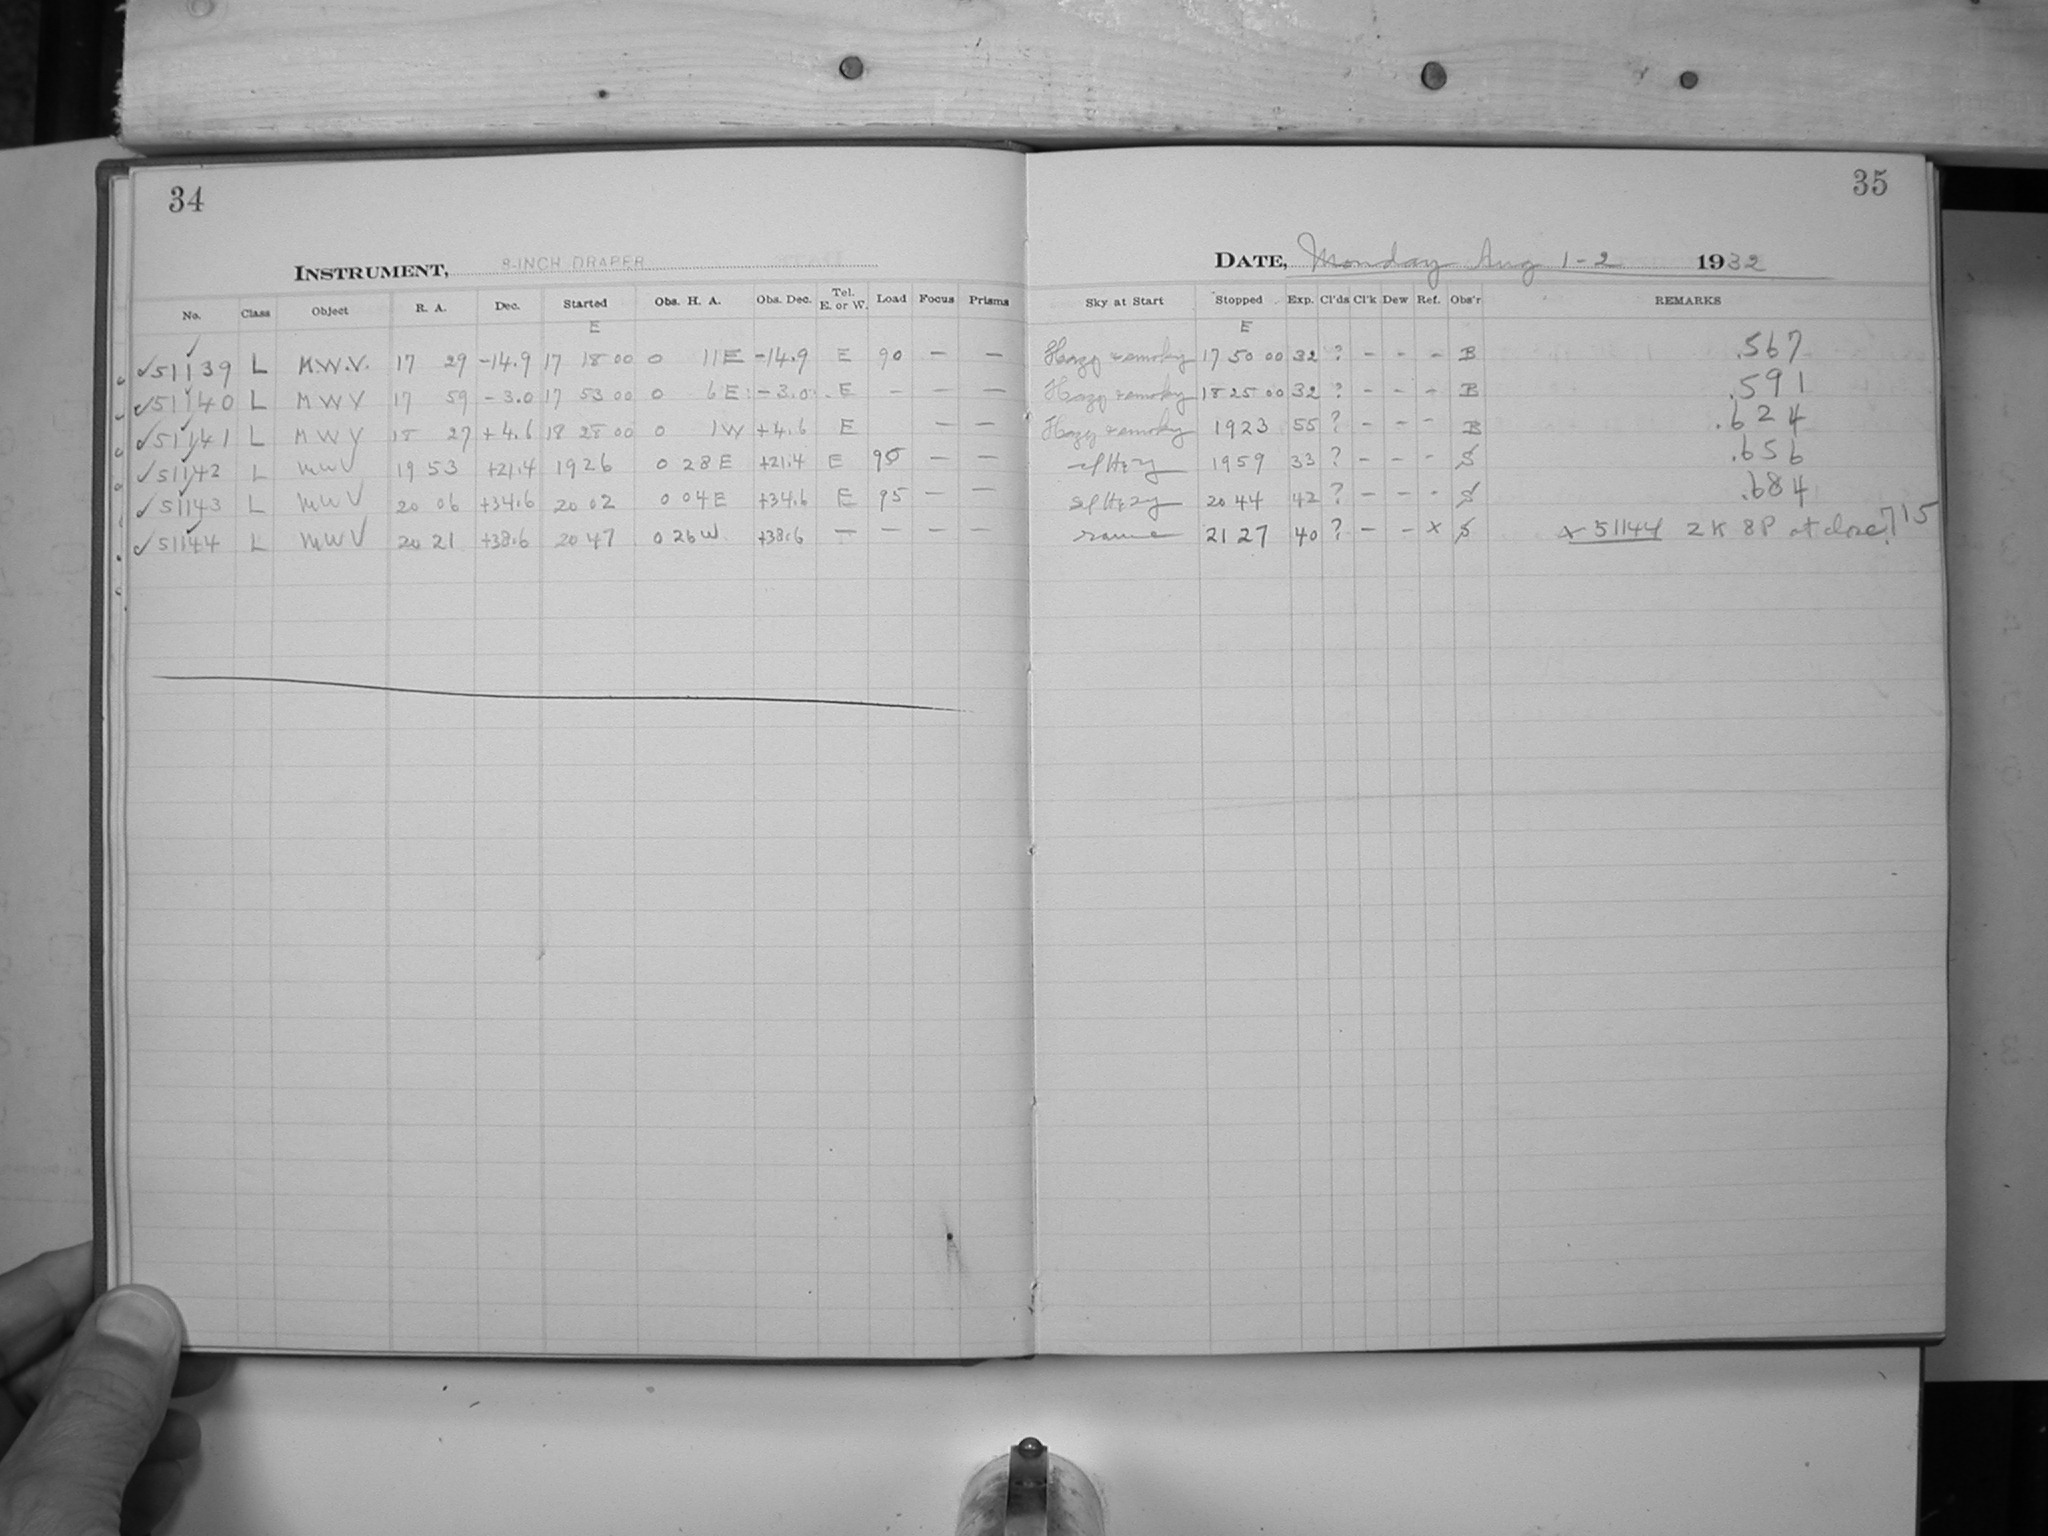 34
INSTRUMENT, 8-INCH DRAPER
No. Class Object R. A. Dec. Started Obs. H. A. Obs. Dec. Tel. E. or W. Load Focus Prisms
E
✓51139 L M.W.V. 17 29 -14.9 17 18 00 0 11E -14.9 E 90 - -
✓51140 L M W V 17 59 -3.0 17 53 00 0 6E -3.0 E - - -
✓51141 L M W V 18 27 +4.6 18 28 00 0 1W +4.6 E - -
✓51142 L M W V 19 53 +21.4 19 26 0 28 E +21.4 E 95 - -
✓51143 L M W V 20 06 +34.6 20 02 0 04 E +34.6 E 95 - -
✓51144 L M W V 20 21 +38.6 20 47 0 26 W +38.6 - - - -
35
DATE, Monday Aug 1-2 1932
Sky at Start Stopped Exp. Cl'ds Cl'k Dew Ref. Obs'r REMARKS
E
Hazy & smoky 17 50 00 32 ? - - - B .567
Hazy & smoky 18 25 00 32 ? - - - B .591
Hazy & smoky 19 23 55 ? - - - B .624
19 59 33 ? - - - S .656
20 44 42 ? - - - S .684
same 21 27 40 ? - - x S x 51144 2K 8P at close .715